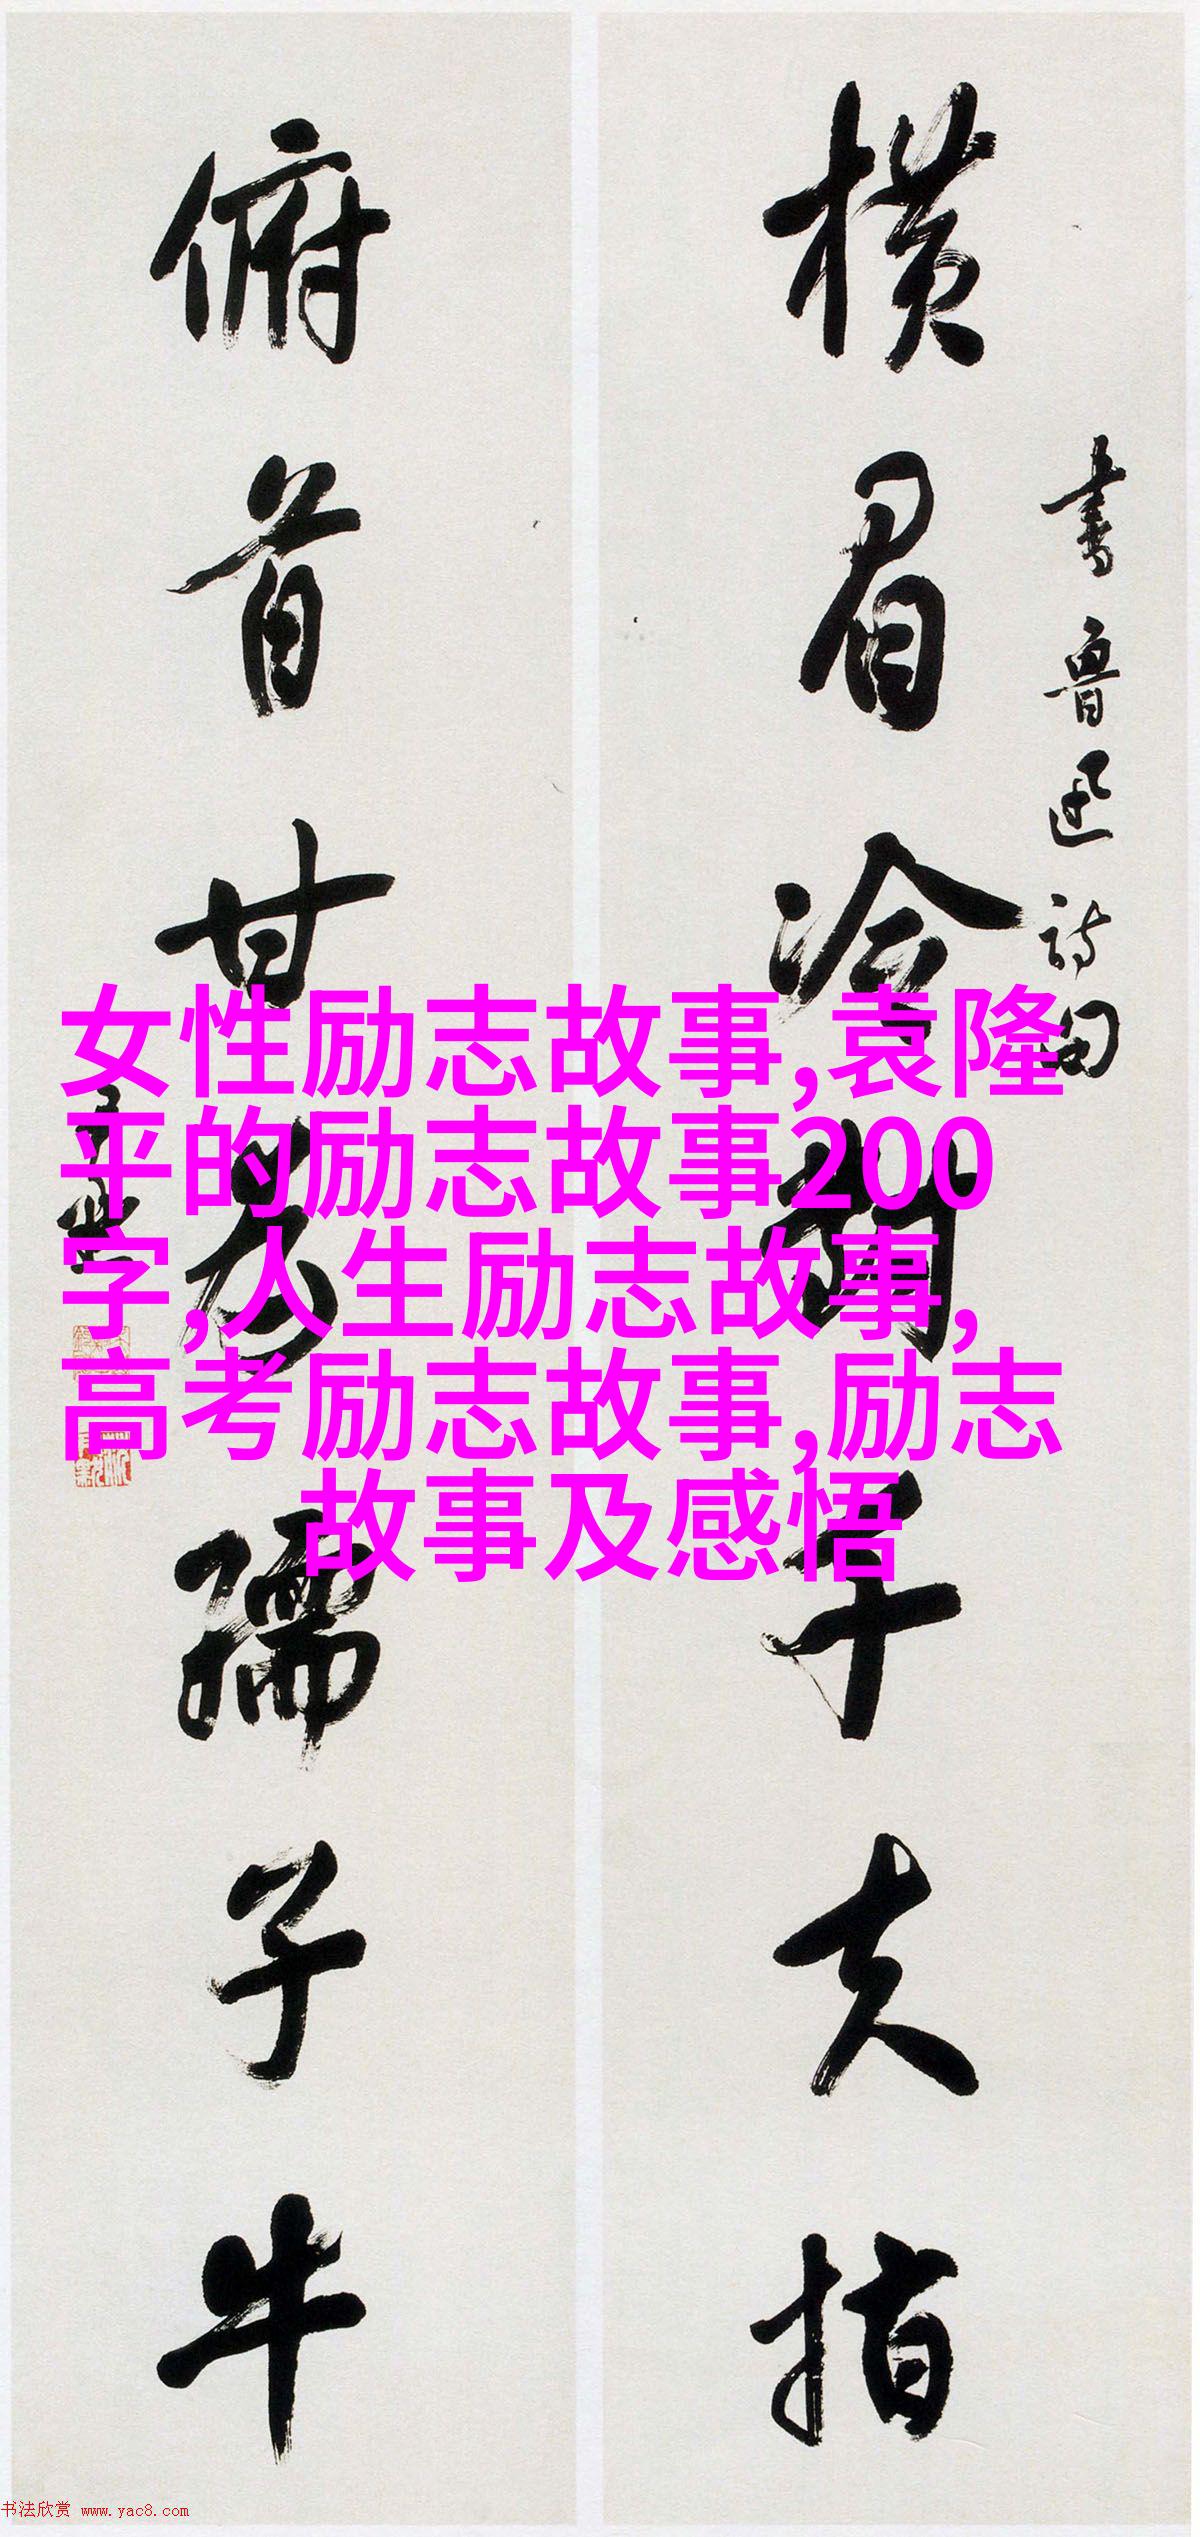 横眉冷对千夫指
书鲁迅诗句
俯首甘为孺子牛
女性励志故事,袁隆
平的励志故事200
字,人生励志故事,
高考励志故事,励志
故事及感悟
书法欣赏 www.yac8.com